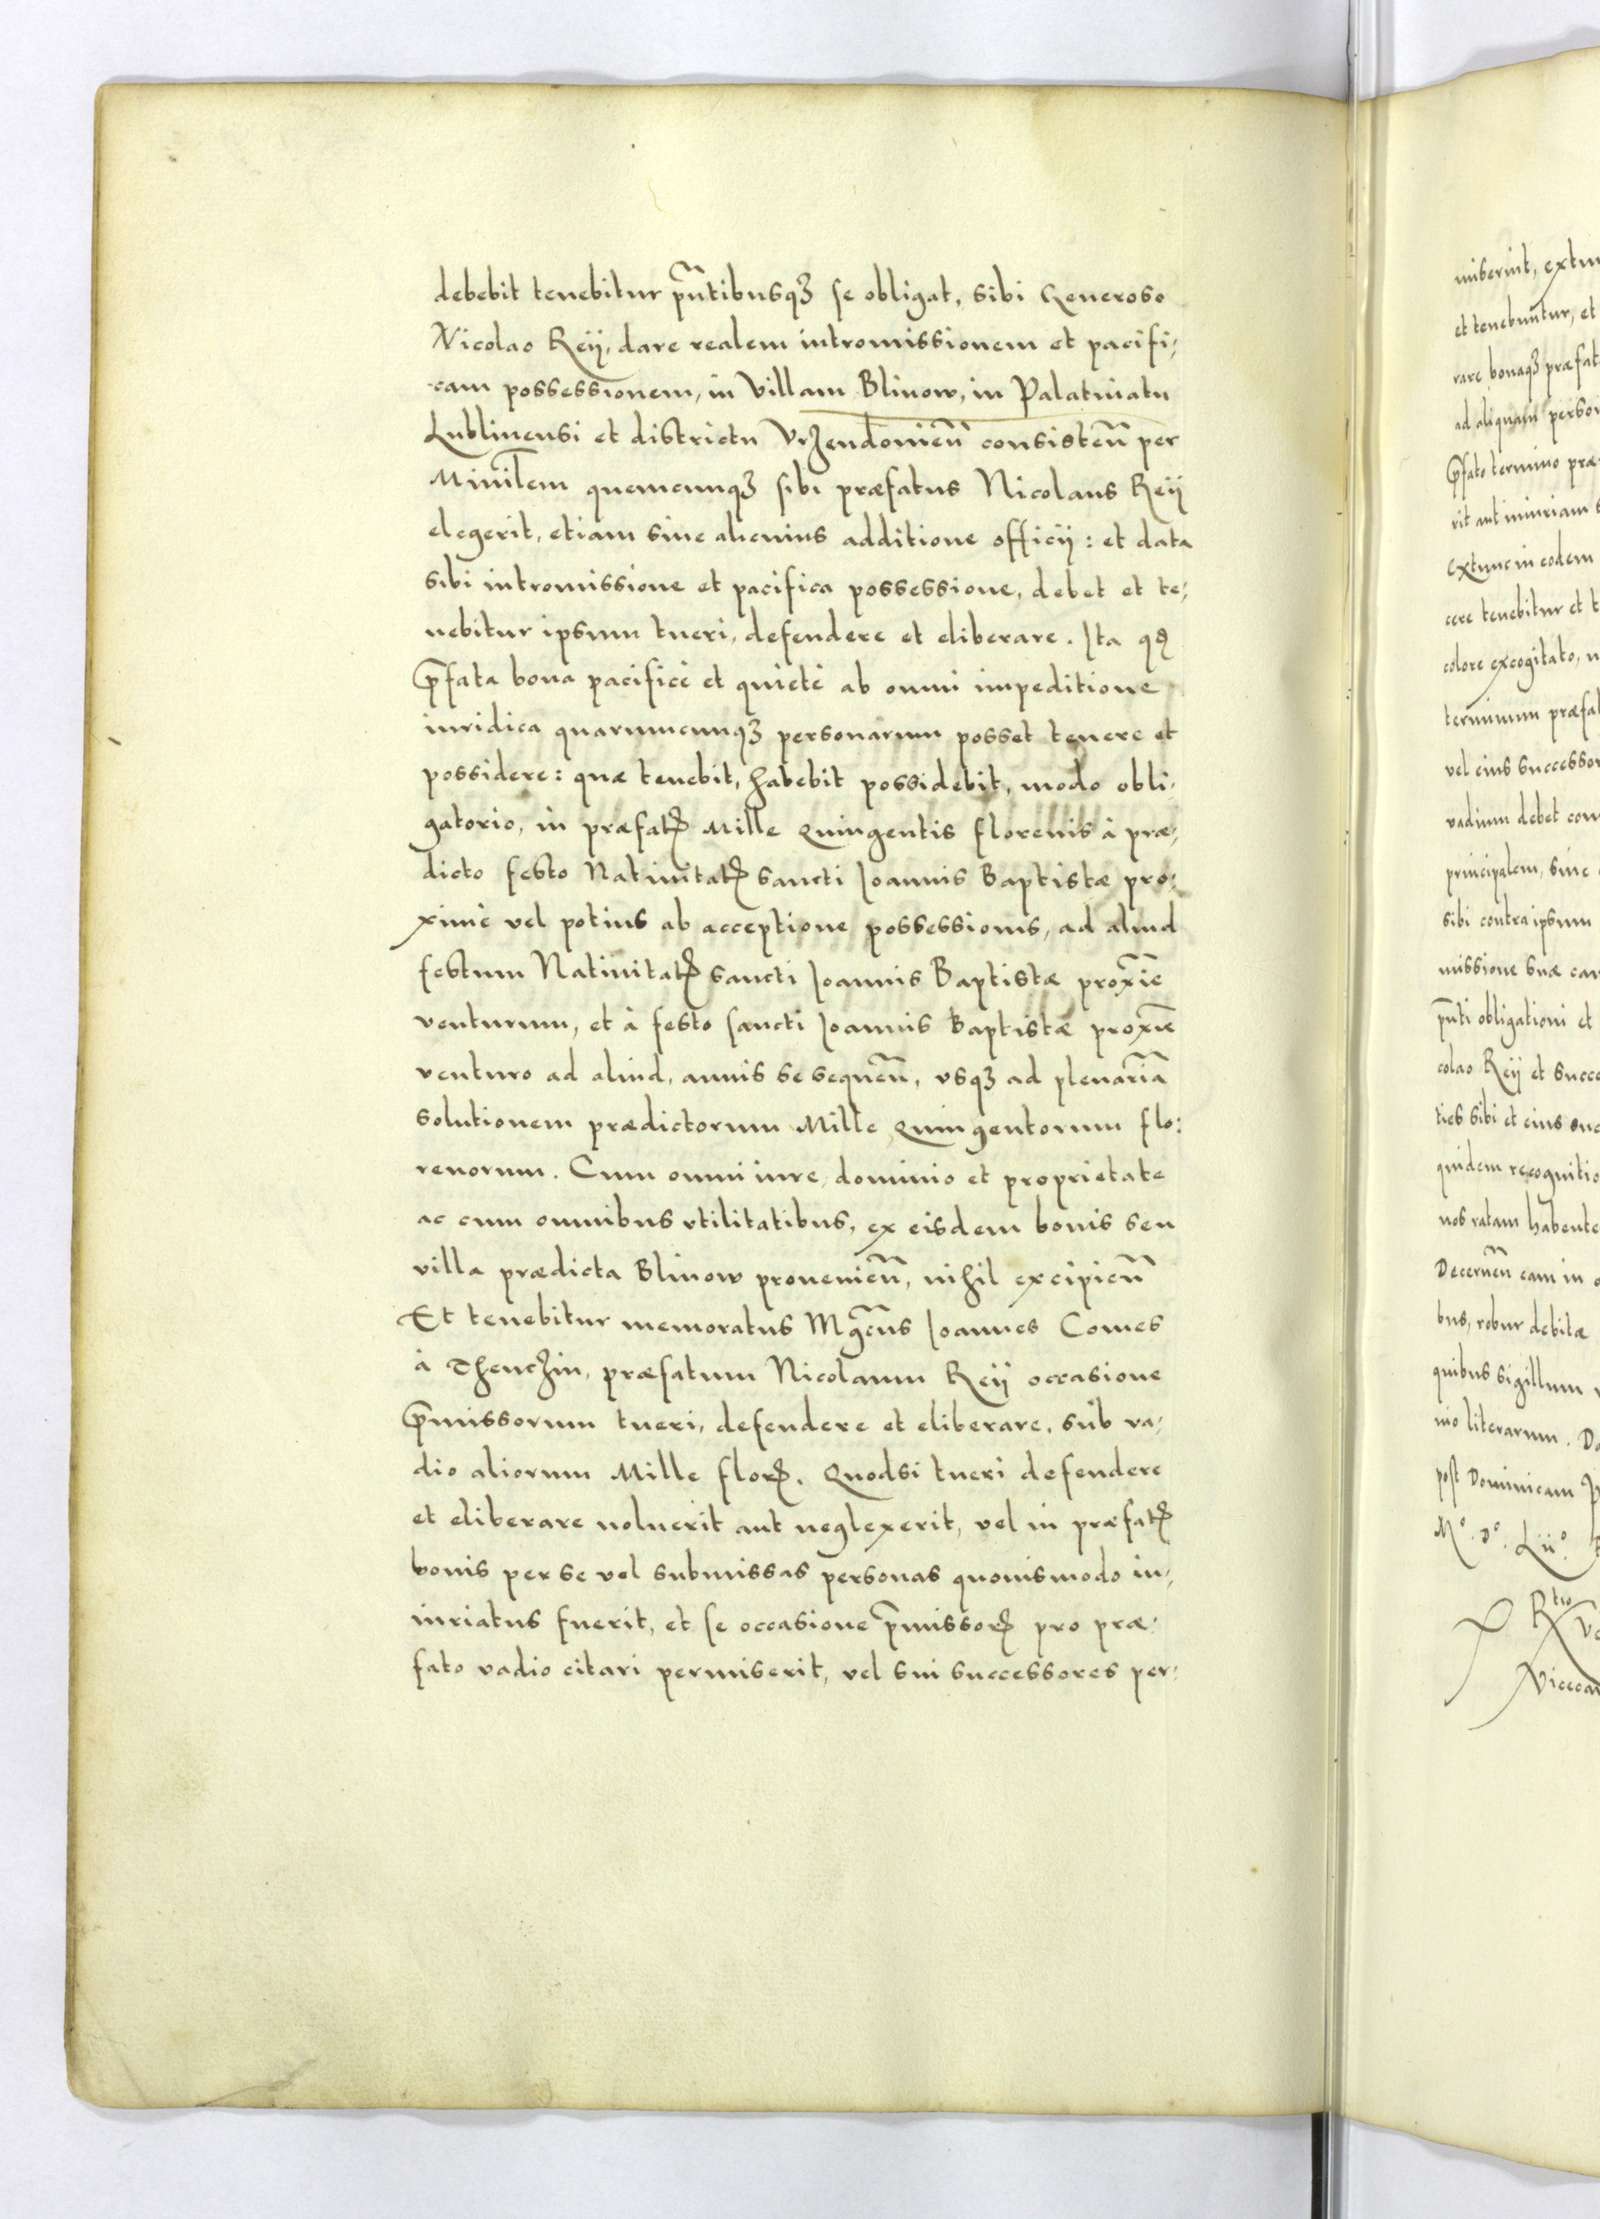 debebit tenebitur p̃ntibusqꝫ se obligat, sibi Generoso
Nicolao Reÿ, dare realem intromissionem et pacifi,
cam possessionem, in Villam Blinow, in Palatinatu
Lublinensi et districtu Vrzendonień consisteñ per
Miniłem quemcunqꝫ sibi præfatus Nicolaus Reÿ
elegerit, etiam sine alicuius additione officÿ: et data
sibi intromissione et pacifica possessione, debet et te,
nebitur ipsum tueri, defendere et eliberare. Ita qđ
p̃fata bona pacificè et quietè ab omni impeditione
iuridica quarumcunqꝫ personarum posset tenere et
possidere: quæ tenebit, habebit possidebit, modo obli,
gatorio, in præfatꝭ Mille Quingentis florenis à præ,
dicto festo Natiuitatꝭ sancti Ioannis Baptistæ pro,
ximè vel potius ab acceptione possessionis, ad aliud
festum Natiuitatꝭ sancti Ioannis Baptistæ proxĩe
venturum, et à festo sancti Ioannis Baptistæ proxĩe
venturo ad aliud, annis se sequeñ, vsqꝫ ad plenariã
solutionem prædictorum Mille Quingentorum flo:
renorum. Cum omni iure, dominio et proprietate
ac cum omnibus vtilitatibus, ex eisdem bonis seu
villa prædicta Blinow prouenieñ, nihil excipieñ
Et tenebitur memoratus Mg̃cus Ioannes Comes
à Thenczin, præfatum Nicolaum Reÿ occasione
p̃missorum tueri, defendere et eliberare, sub va,
dio aliorum Mille florꝭ. Quodsi tueri defendere
et eliberare noluerit aut neglexerit, vel in præfatꝭ
bonis per se vel submissas personas quouismodo in,
iuriatus fuerit, et se occasione p̃missorꝭ pro præ,
fato vadio citari permiserit, vel sui successores per,
miserint, extun
et tenebuntur, et
rare bonaqꝫ præfat
ad aliquam person
p̃fato termino præ
rit aut iniuriam
extunc in eodem
cere tenebitur et t
colore excogitato,
terminum præfat
vel eius successor
vadium debet con
principalem, sine
sibi contra ipsum
missione suæ
p̃nti obligationi et
colao Reÿ et succe
ties sibi et eius suc
quidem recognitio
nos ratam habente
Decerneñ eam in
bus, robur debitæ
quibus sigillum
nio literarum. Da
post Dominicam
Mº. Dº. Lijº.